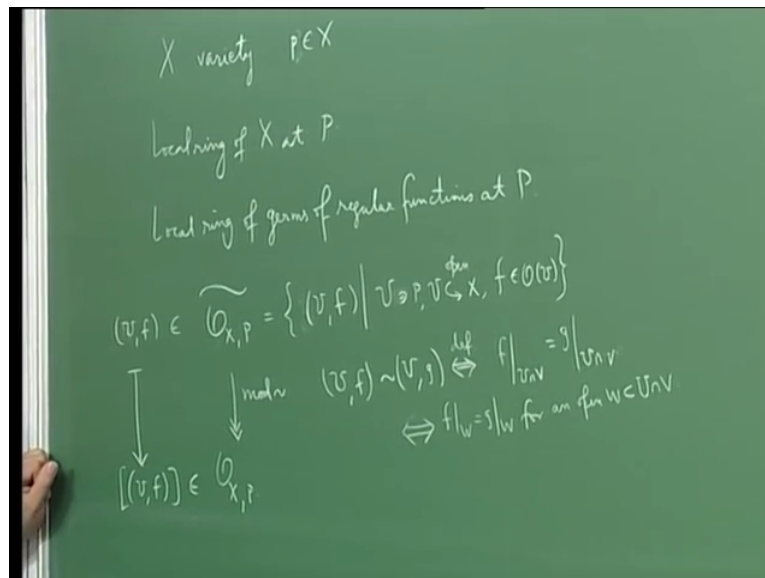 X variety P ∈ X
Local ring of X at P.
Local ring of germs of regular functions at P
(U,f) ∈ \widetilde{O_{X,P}} = { (U,f) | U ∋ P, U \overset{open}{↪} X, f ∈ O(U) }
mod ~ (U,f) ~ (V,g) \overset{def}{⇔} f|_{U∩V} = g|_{U∩V}
⇔ f|_W = g|_W for an open W ⊂ U∩V
[(U,f)] ∈ O_{X,P}